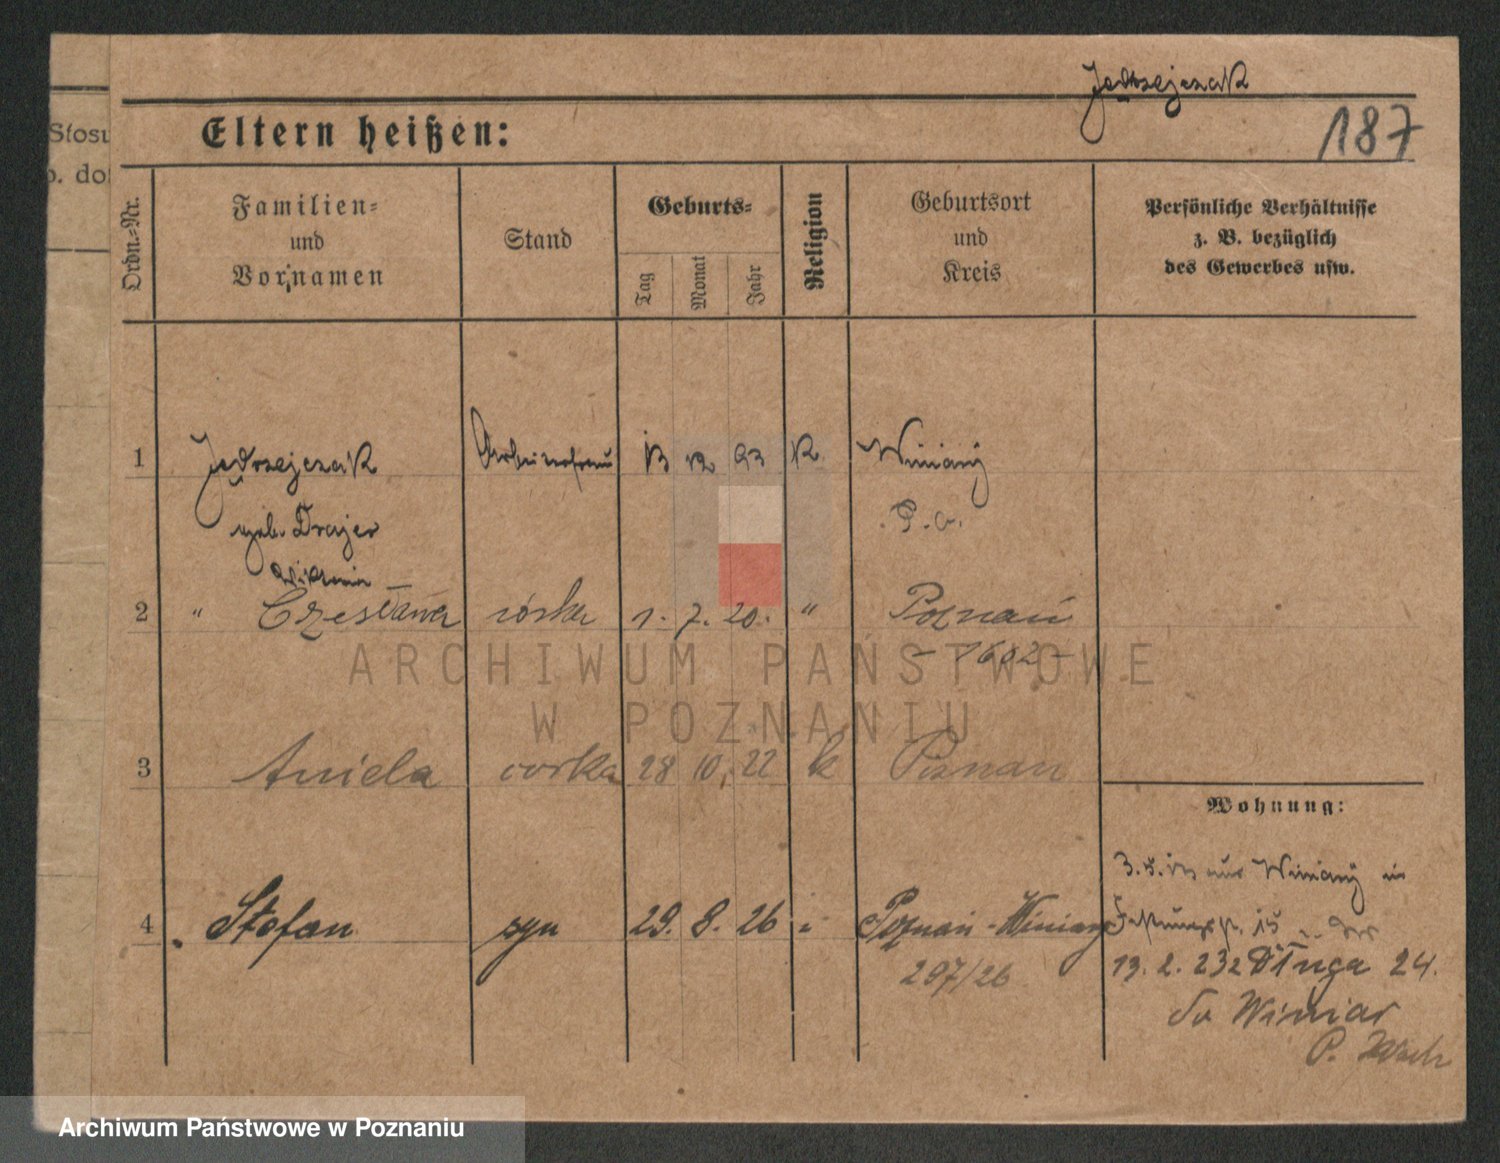 Jędrzejczak
Stosu
b. do
Eltern heißen:
187
Ordn.-Nr.
Familien-
und
Vornamen
Stand
Geburts-
Tag
Monat
Jahr
Religion
Geburtsort
und
Kreis
Persönliche Verhältnisse
z. B. bezüglich
des Gewerbes usw.
1 Jędrzejczak Arbeiterfrau 93 K. Winiary
geb. Drajer P. O.
Wiktoria
2 " Czesława córka 1. 7. 20. " Poznań
ARCHIWUM PAŃSTWOWE
W POZNANIU
3 Aniela corka 28 10. 22 k Poznań
Wohnung:
Winiary in
4 Stefan syn 29. 8. 26 " Poznań-Winiary
297/26
13. 2. 23 z Długa 24.
do Winiar
P.
Archiwum Państwowe w Poznaniu